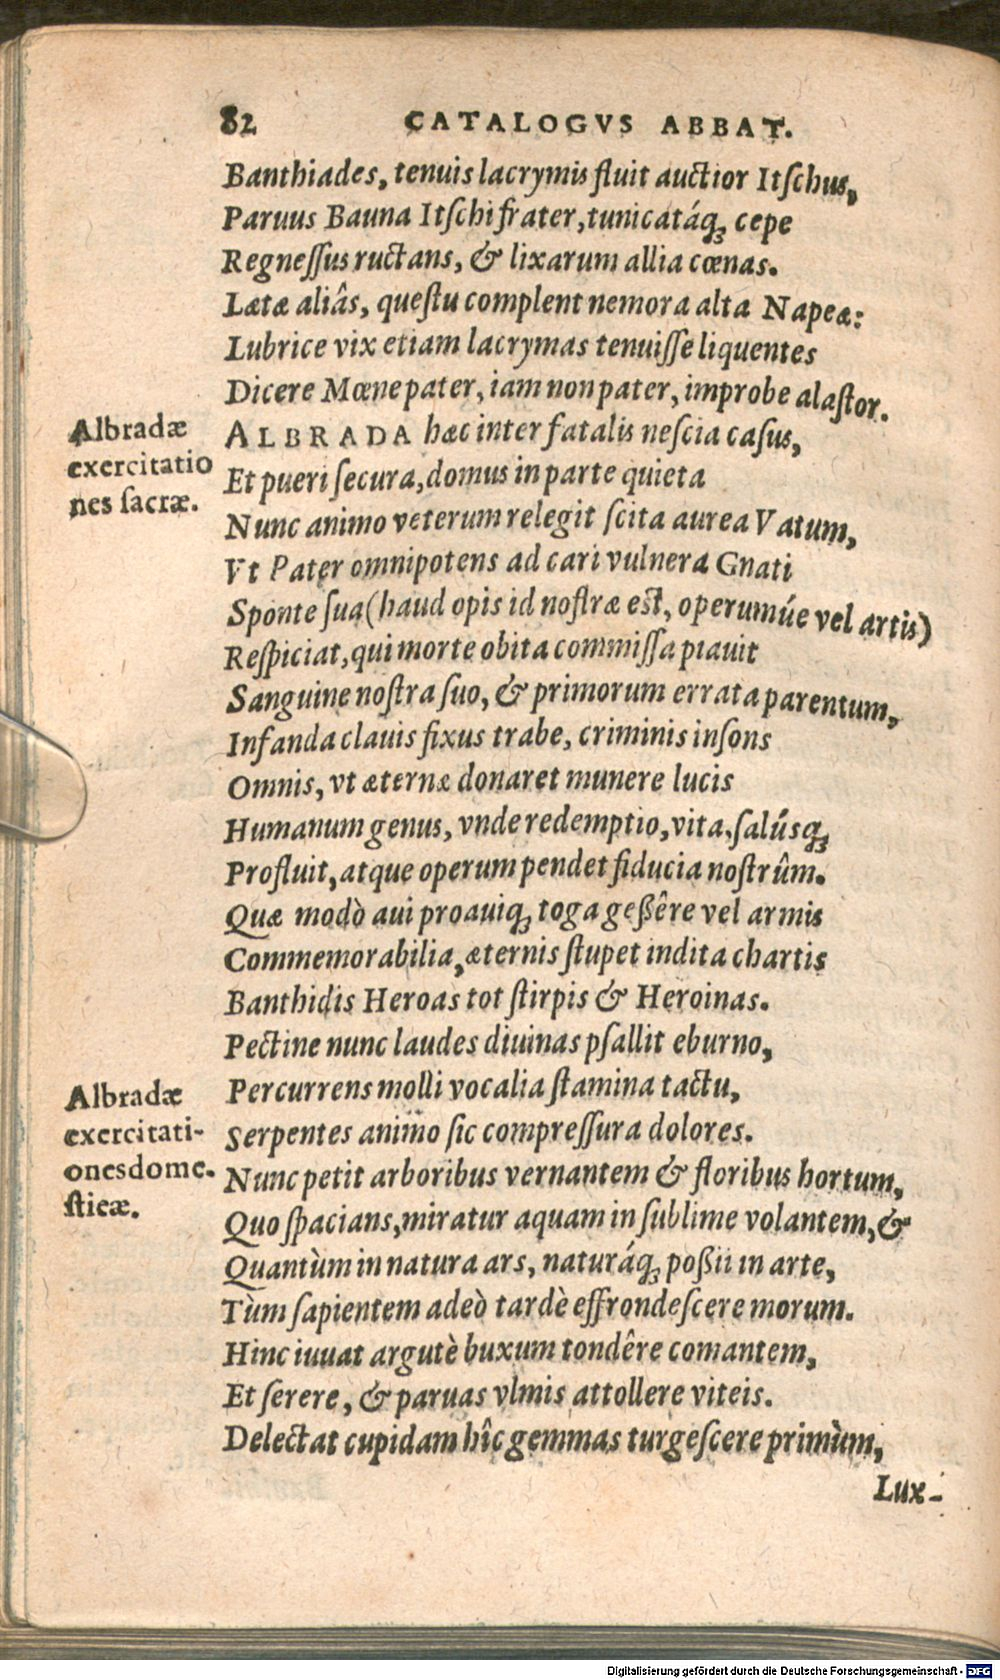 82 CATALOGVS ABBAT.
Banthiades, tenuis lacrymis fluit auctior Itſchus,
Paruus Bauna Itſchi frater, tunicatáq́; cepe
Regneſſus ructans, & lixarum allia cœnas.
Lætæ aliâs, queſtu complent nemora alta Napeæ:
Lubrice vix etiam lacrymas tenuiſſe liquentes
Dicere Mœne pater, iam non pater, improbe alaſtor.
Albradæ
exercitatio
nes ſacræ.
ALBRADA hæc inter fatalis neſcia caſus,
Et pueri ſecura, domus in parte quieta
Nunc animo veterum relegit ſcita aurea Vatum,
Vt Pater omnipotens ad cari vulnera Gnati
Sponte ſua (haud opis id noſtræ eſt, operumúe vel artis)
Reſpiciat, qui morte obita commiſſa piauit
Sanguine noſtra ſuo, & primorum errata parentum,
Infanda clauis fixus trabe, criminis inſons
Omnis, vt æternæ donaret munere lucis
Humanum genus, vnde redemptio, vita, ſalúsq́;
Profluit, atque operum pendet fiducia noſtrûm.
Quæ modò aui proauiq; toga geßêre vel armis
Commemorabilia, æternis ſtupet indita chartis
Banthidis Heroas tot ſtirpis & Heroinas.
Pectine nunc laudes diuinas pſallit eburno,
Percurrens molli vocalia ſtamina tactu,
Serpentes animo ſic compreſſura dolores.
Albradæ
exercitati-
ones dome-
ſticæ.
Nunc petit arboribus vernantem & floribus hortum,
Quo ſpacians, miratur aquam in ſublime volantem, &
Quantùm in natura ars, naturáq; poßit in arte,
Tùm ſapientem adeò tardè effrondeſcere morum.
Hinc iuuat argutè buxum tondêre comantem,
Et ſerere, & paruas vlmis attollere viteis.
Delectat cupidam hîc gemmas turgeſcere primùm,
Lux-
Digitalisierung gefördert durch die Deutsche Forschungsgemeinschaft - DFG